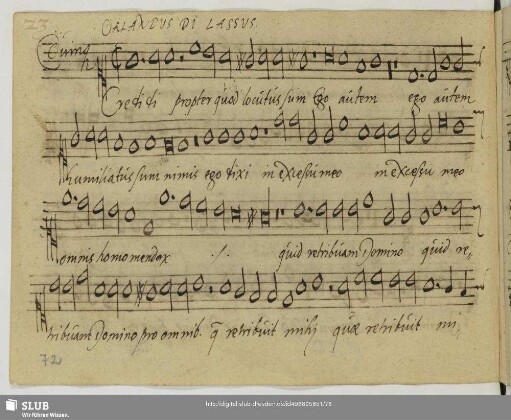 23
ORLANDUS DI LASSUS
Credidi propter quod locutus sum Ego autem ego autem
humiliatus sum nimis ego dixi in excessu meo in excessu meo
omnis homo mendax ./. quid retribuam Domino quid re,
tribuam Domino pro omnib. q retribuit mihi quae retribuit mi,
72
SLUB
Wir führen Wissen.